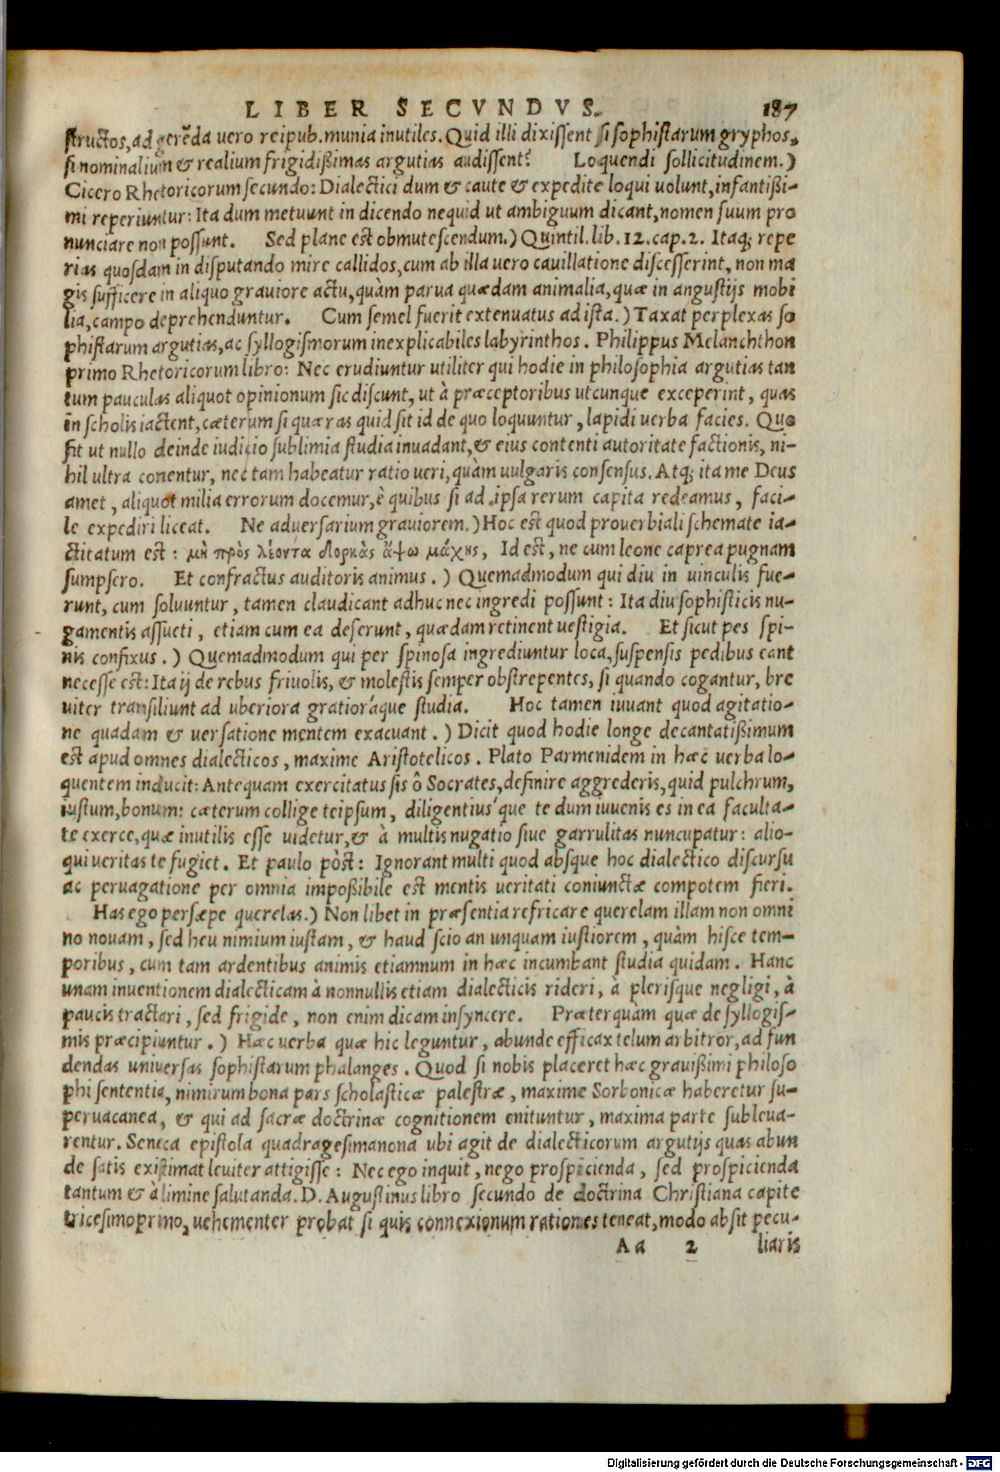 LIBER SECVNDVS. 187
structos, ad gerēda uero reipub. munia inutiles. Quid illi dixissent si sophistarum gryphos,
si nominalium & realium frigidißimas argutias audissent? Loquendi sollicitudinem.)
Cicero Rhetoricorum secundo: Dialectici dum & caute & expedite loqui uolunt, infantißi-
mi reperiuntur: Ita dum metuunt in dicendo nequid ut ambiguum dicant, nomen suum pro
nunciare non possunt. Sed plane est obmutescendum.) Quintil. lib. 12. cap. 2. Itaq; repe
rias quosdam in disputando mire callidos, cum ab illa uero cauillatione discesserint, non ma
gis sufficere in aliquo grauiore actu, quàm parua quædam animalia, quæ in angustijs mobi
lia, campo deprehenduntur. Cum semel fuerit extenuatus ad ista.) Taxat perplexas so
phistarum argutias, ac syllogismorum inexplicabiles labyrinthos. Philippus Melanchthon
primo Rhetoricorum libro: Nec erudiuntur utiliter qui hodie in philosophia argutias tan
tum pauculas aliquot opinionum sic discunt, ut à præceptoribus utcunque exceperint, quas
in scholis iactent, cæterum si quæras quid sit id de quo loquuntur, lapidi uerba facies. Quo
fit ut nullo deinde iudicio sublimia studia inuadant, & eius contenti autoritate factionis, ni-
hil ultra conentur, nec tam habeatur ratio ueri, quàm uulgaris consensus. Atq; ita me Deus
amet, aliquot milia errorum docemur, è quibus si ad ipsa rerum capita redeamus, faci-
le expediri liceat. Ne aduersarium grauiorem.) Hoc est quod prouerbiali schemate ia-
ctitatum est: μὴ πρὸς λέοντα δορκὰς ἅψω μάχης, Id est, ne cum leone caprea pugnam
sumpsero. Et confractus auditoris animus.) Quemadmodum qui diu in uinculis fue-
runt, cum soluuntur, tamen claudicant adhuc nec ingredi possunt: Ita diu sophisticis nu-
gamentis assueti, etiam cum ea deserunt, quædam retinent uestigia. Et sicut pes spi-
nis confixus.) Quemadmodum qui per spinosa ingrediuntur loca, suspensis pedibus eant
necesse est: Ita ij de rebus friuolis, & molestis semper obstrepentes, si quando cogantur, bre
uiter transiliunt ad uberiora gratioraque studia. Hoc tamen iuuant quod agitatio-
ne quadam & uersatione mentem exacuant.) Dicit quod hodie longe decantatißimum
est apud omnes dialecticos, maxime Aristotelicos. Plato Parmenidem in hæc uerba lo-
quentem inducit: Antequam exercitatus sis ô Socrates, definire aggrederis, quid pulchrum,
iustum, bonum: cæterum collige teipsum, diligentius'que te dum iuuenis es in ea faculta-
te exerce, quæ inutilis esse uidetur, & à multis nugatio siue garrulitas nuncupatur: alio-
qui ueritas te fugiet. Et paulo pòst: Ignorant multi quod absque hoc dialectico discursu
ac peruagatione per omnia impoßibile est mentis ueritati coniunctæ compotem fieri.
Has ego persæpe querelas.) Non libet in præsentia refricare querelam illam non omni
no nouam, sed heu nimium iustam, & haud scio an unquam iustiorem, quàm hisce tem-
poribus, cum tam ardentibus animis etiamnum in hæc incumbant studia quidam. Hanc
unam inuentionem dialecticam à nonnullis etiam dialecticis rideri, à plerisque negligi, à
paucis tractari, sed frigide, non enim dicam insyncere. Præterquam quæ de syllogis-
mis præcipiuntur.) Hæc uerba quæ hic leguntur, abunde efficax telum arbitror, ad fun
dendas uniuersas sophistarum phalanges. Quod si nobis placeret hæc grauißimi philoso
phi sententia, nimirum bona pars scholasticæ palestræ, maxime Sorbonicæ haberetur su-
peruacanea, & qui ad sacræ doctrinæ cognitionem enituntur, maxima parte subleua-
rentur. Seneca epistola quadragesimanona ubi agit de dialecticorum argutijs quas abun
de satis existimat leuiter attigisse: Nec ego inquit, nego prospicienda, sed prospicienda
tantum & à limine salutanda. D. Augustinus libro secundo de doctrina Christiana capite
tricesimoprimo, uehementer probat si quis connexionum rationes teneat, modo absit pecu-
Aa 2 liaris
Digitalisierung gefördert durch die Deutsche Forschungsgemeinschaft - DFG